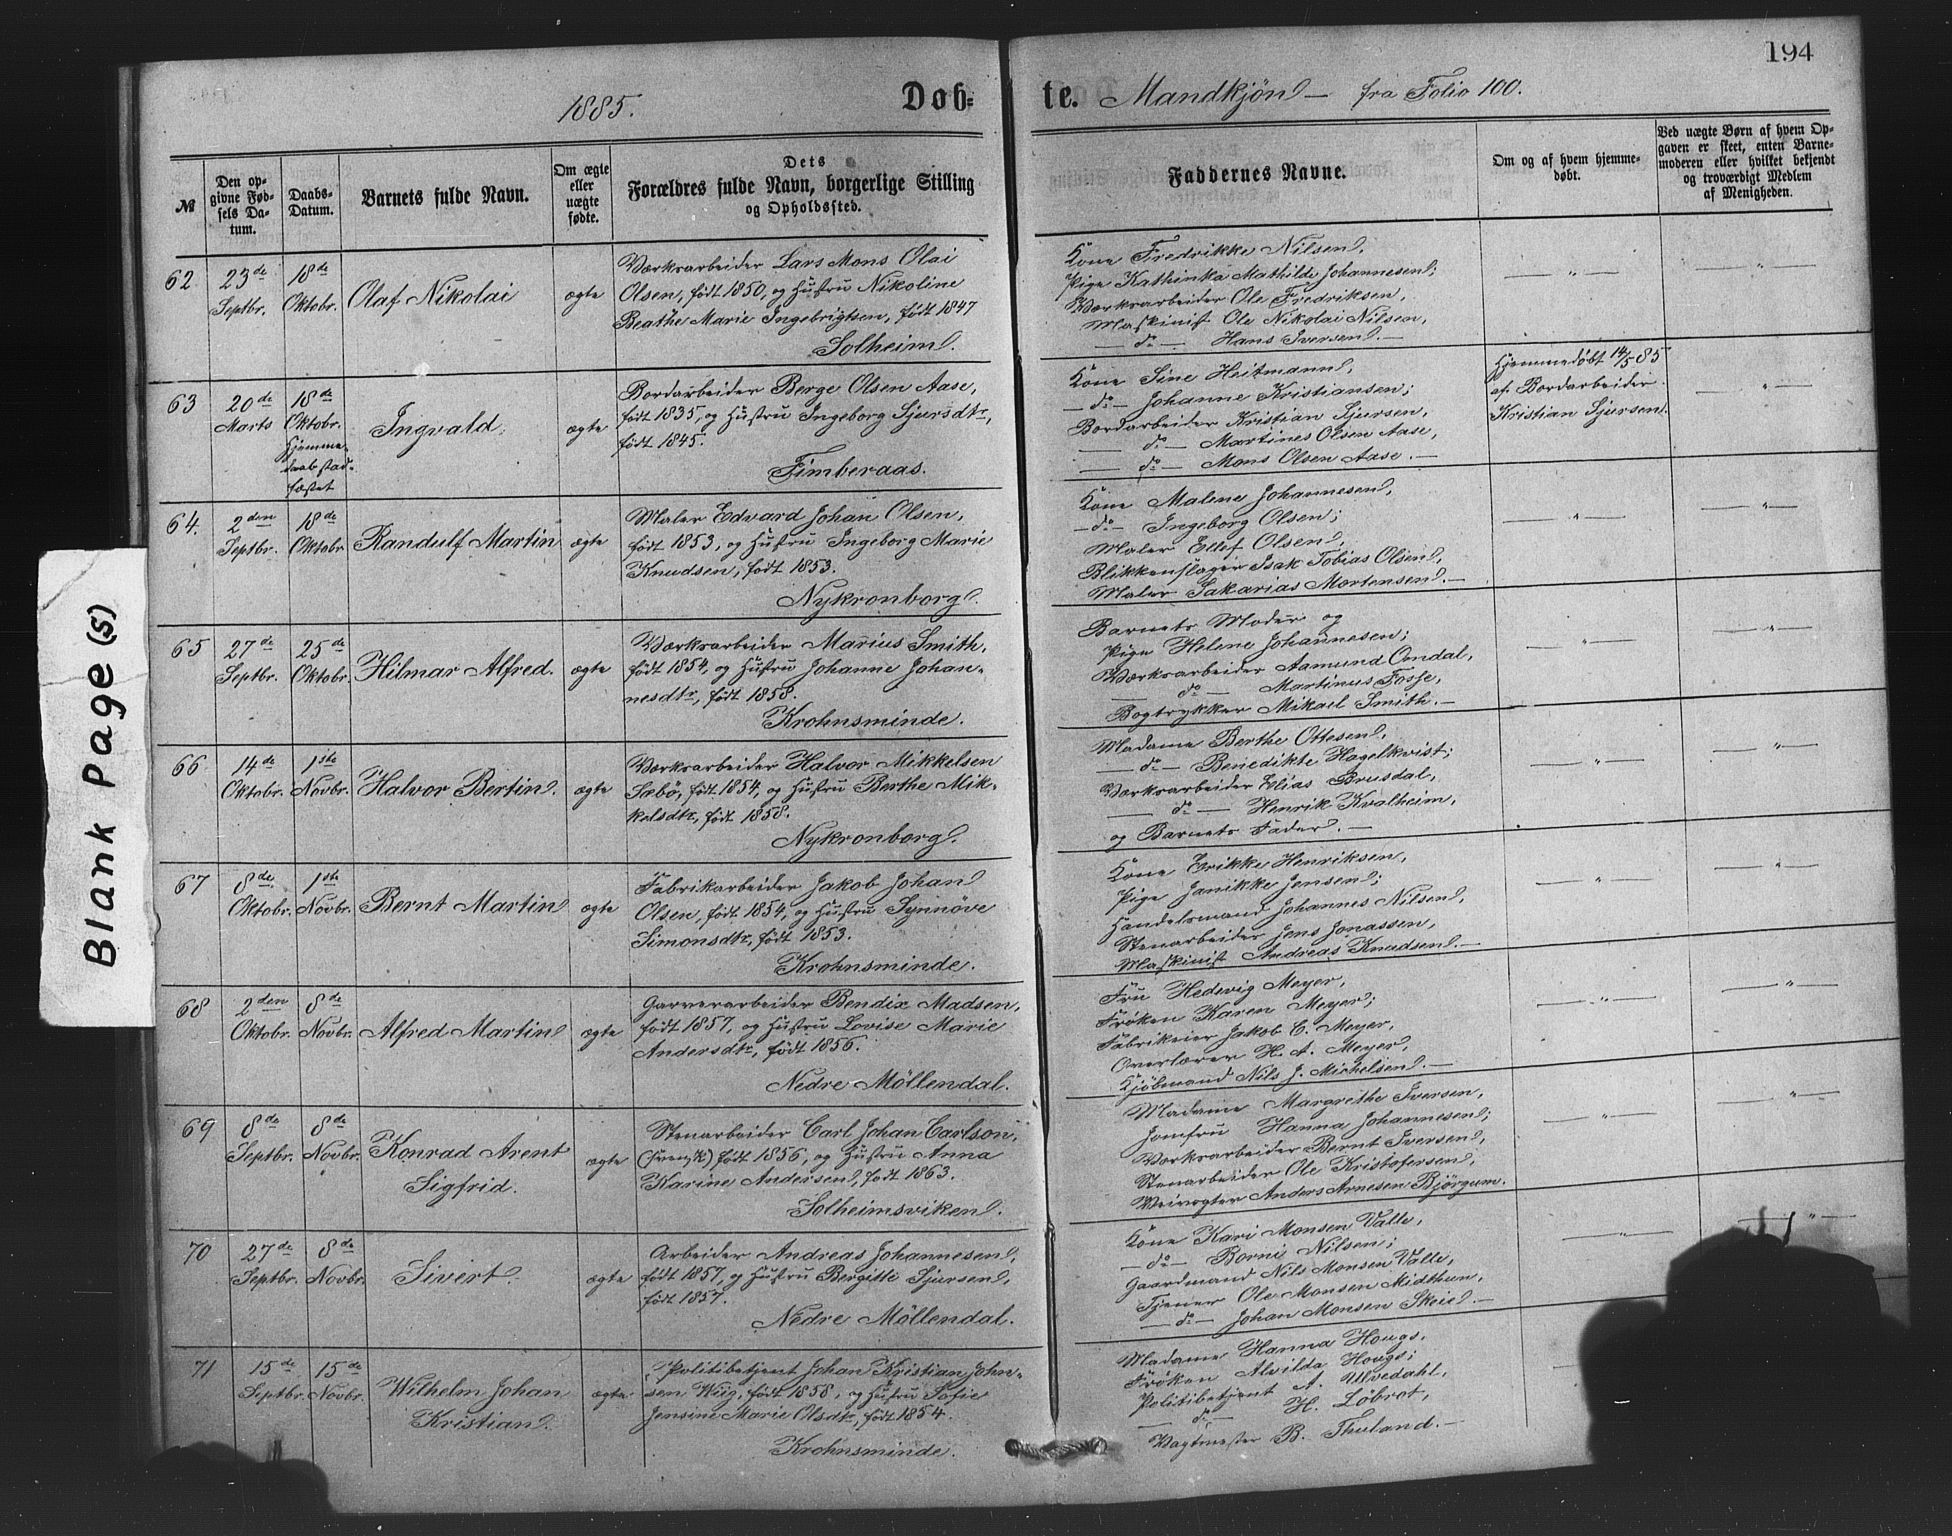 194
1885. Døb- te. Mandkjøn — fra Folio 100.
№
Den op-
givne Fød-
sels Da-
tum.
Daabs-
Datum.
Barnets fulde Navn.
Om ægte
eller
uægte
fødte.
Dets
Forældres fulde Navn, borgerlige Stilling
og Opholdssted.
Faddernes Navne.
Om og af hvem hjemme-
døbt.
Ved uægte Børn af hvem Op-
gaven er skeet, enten Barne-
moderen eller hvilket bekjendt
og troværdigt Medlem
af Menigheden.
62
23de
Septbr.
18de
Oktobr.
Olaf Nikolai
ægte
Værksarbeider Lars Mons Olai
Olsen, født 1850, og Hustru Nikoline
Beathe Marie Ingebrigtsen, født 1847
Solheim.
Kone Fredrikke Nilsen,
Pige Kathinka Mathilde Johannesen;
Værksarbeider Ole Fredriksen,
Maskinist Ole Nikolai Nilsen,
— do — Hans Iversen. —
— " —
— " —
63
20de
Marts
18de
Oktobr.
Hjemme-
daab stad-
fæstet
Ingvald.
ægte
Bordarbeider Berge Olsen Aase,
født 1835, og Hustru Ingeborg Sjursdtr,
født 1845.
Fimberaas.
Kone Sine Heitmann,
— do — Johanne Kristiansen;
Bordarbeider Kristian Sjursen,
— do — Martines Olsen Aase,
— do — Mons Olsen Aase. —
Hjemmedøbt 14/5 85
af Bordarbeider
Kristian Sjursen.
— " —
64.
2den
Septbr.
18de
Oktobr
Randulf Martin
ægte
Maler Edvard Johan Olsen,
født 1853, og Hustru Ingeborg Marie
Knudsen, født 1853.
Nykronborg.
Kone Malene Johannesen,
— do — Ingeborg Olsen;
Maler Ellef Olsen,
Blikkenslager Isak Tobias Olsen,
Maler Sakarias Mortensen. —
— " —
— " —
65
27de
Septbr.
25de
Oktobr.
Hilmar Alfred.
ægte
Værksarbeider Marius Smith,
født 1854, og Hustru Johanne Johan-
nesdtr, født 1858.
Krohnsminde.
Barnets Moder og
Pige Helene Johannesen;
Værksarbeider Aamund Omdal,
— do — Martinus Fosse,
Bogtrykker Mikael Smith. —
— " —
— " —
66
14de
Oktobr.
1ste
Novbr.
Halvor Bertin.
ægte
Værksarbeider Halvor Mikkelsen
Sæbø, født 1854, og Hustru Berthe Mik-
kelsdtr, født 1858.
Nykronborg.
Madame Berthe Ottesen,
— do — Benedikte Hagelkvist;
Værksarbeider Elias Brusdal,
— do — Henrik Kvalheim,
og Barnets Fader. —
— " —
— " —
67
8de
Oktobr.
1ste
Novbr.
Bernt Martin
ægte
Fabrikarbeider Jakob Johan
Olsen, født 1854, og Hustru Synnöve
Simonsdtr, født 1853.
Krohnsminde.
Kone Erikke Henriksen,
Pige Janikke Jensen;
Handelsmand Johannes Nilsen,
Stenarbeider Jens Jonassen,
Maskinist Andreas Knudsen. —
— " —
— " —
68
2den
Oktobr.
8de
Novbr.
Alfred Martin
ægte
Garverarbeider Bendix Madsen,
født 1857, og Hustru Lovise Marie
Andersdtr, født 1856.
Nedre Möllendal.
Fru Hedevig Meyer,
Frøken Karen Meyer;
Fabrikeier Jakob C. Meyer,
Overlærer H. A. Meyer,
Kjøbmand Nils J. Michelsen. —
— " —
— " —
69
8de
Septbr.
8de
Novbr.
Konrad Arent
Sigfrid.
ægte
Stenarbeider Carl Johan Carlson,
(svensk) født 1856, og Hustru Anna
Karine Andersen, født 1863.
Solheimsviken.
Madame Margrethe Iversen,
Jomfru Hanna Johannesen;
Værksarbeider Bernt Iversen,
Stenarbeider Ole Kristofersen,
Veivogter Anders Arnesen Bjørgum.
— " —
— " —
70
27de
Septbr.
8de
Novbr.
Sivert.
ægte
Arbeider Andreas Johannesen,
født 1857, og Hustru Bergitte Sjursen,
født 1857.
Nedre Möllendal.
Kone Kari Monsen Valle,
— do — Borni Nilsen;
Gaardmand Nils Monsen Valle,
Tjener Ole Monsen Midthun,
— do — Johan Monsen Skeie. —
— " —
— " —
71
15de
Septbr.
15de
Novbr.
Wilhelm Johan
Kristian.
ægte
Politibetjent Johan Kristian John-
sen Wiig, født 1858, og Hustru Sofie
Jensine Marie Olsdtr, født 1854.
Krohnsminde.
Madame Hanna Hougs,
Frøken Alvilda Hougs;
Politibetjent A. Ulvedahl,
— do — H. Löbrot,
Vagtmester B. Thuland. —
Blank Page (s)